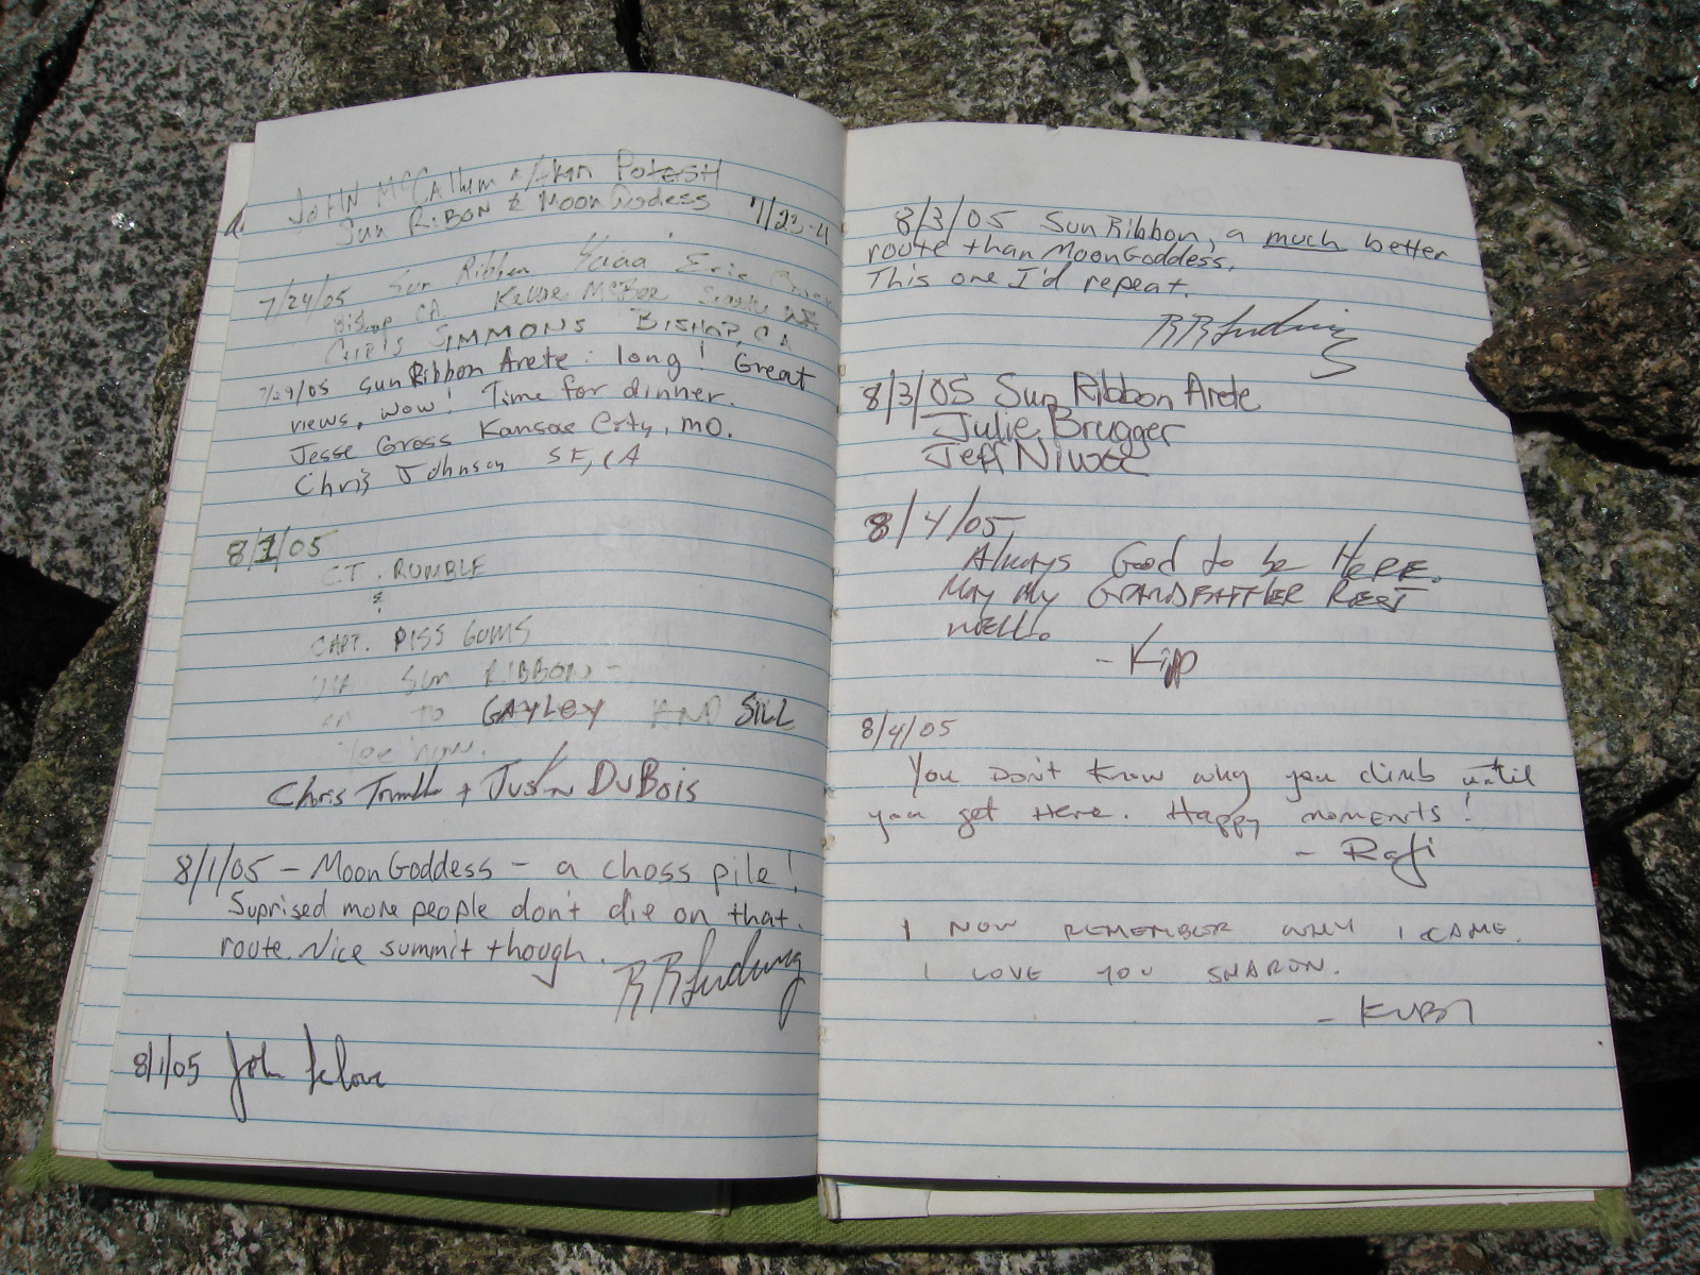 JOHN MCCAllum Potash
Sun RIBON & MOON Godess 7/23
7/24/05 Sun Ribbon Eric
Bishop CA. Kellie
CHRIS SIMMONS BISHOP, CA
7/29/05 Sun Ribbon Arete: long! Great
views, wow! Time for dinner.
Jesse Gross Kansas City, MO.
Chris Johnson SF, CA
8/1/05
CT. RUMBLE
&
CAPT. PISS GUMS
VIA SUN RIBBON -
TO GAYLEY AND SILL
now.
Chris + Justin DuBois
8/1/05 - Moon Goddess - a choss pile!
Suprised more people don't die on that
route. Nice summit though.
8/1/05 John
8/3/05 Sun Ribbon, a much better
route than Moon Goddess.
This one I'd repeat.
8/3/05 Sun Ribbon Arete
Julie Brugger
Jeff
8/4/05
Always Good to be HERE.
May My GRANDFATHER REST
WELL.
- Kipp
8/4/05
You Don't know why you climb until
you get Here. Happy moments!
- Rafi
I NOW REMEMBER WHY I CAME.
I LOVE YOU SHARON.